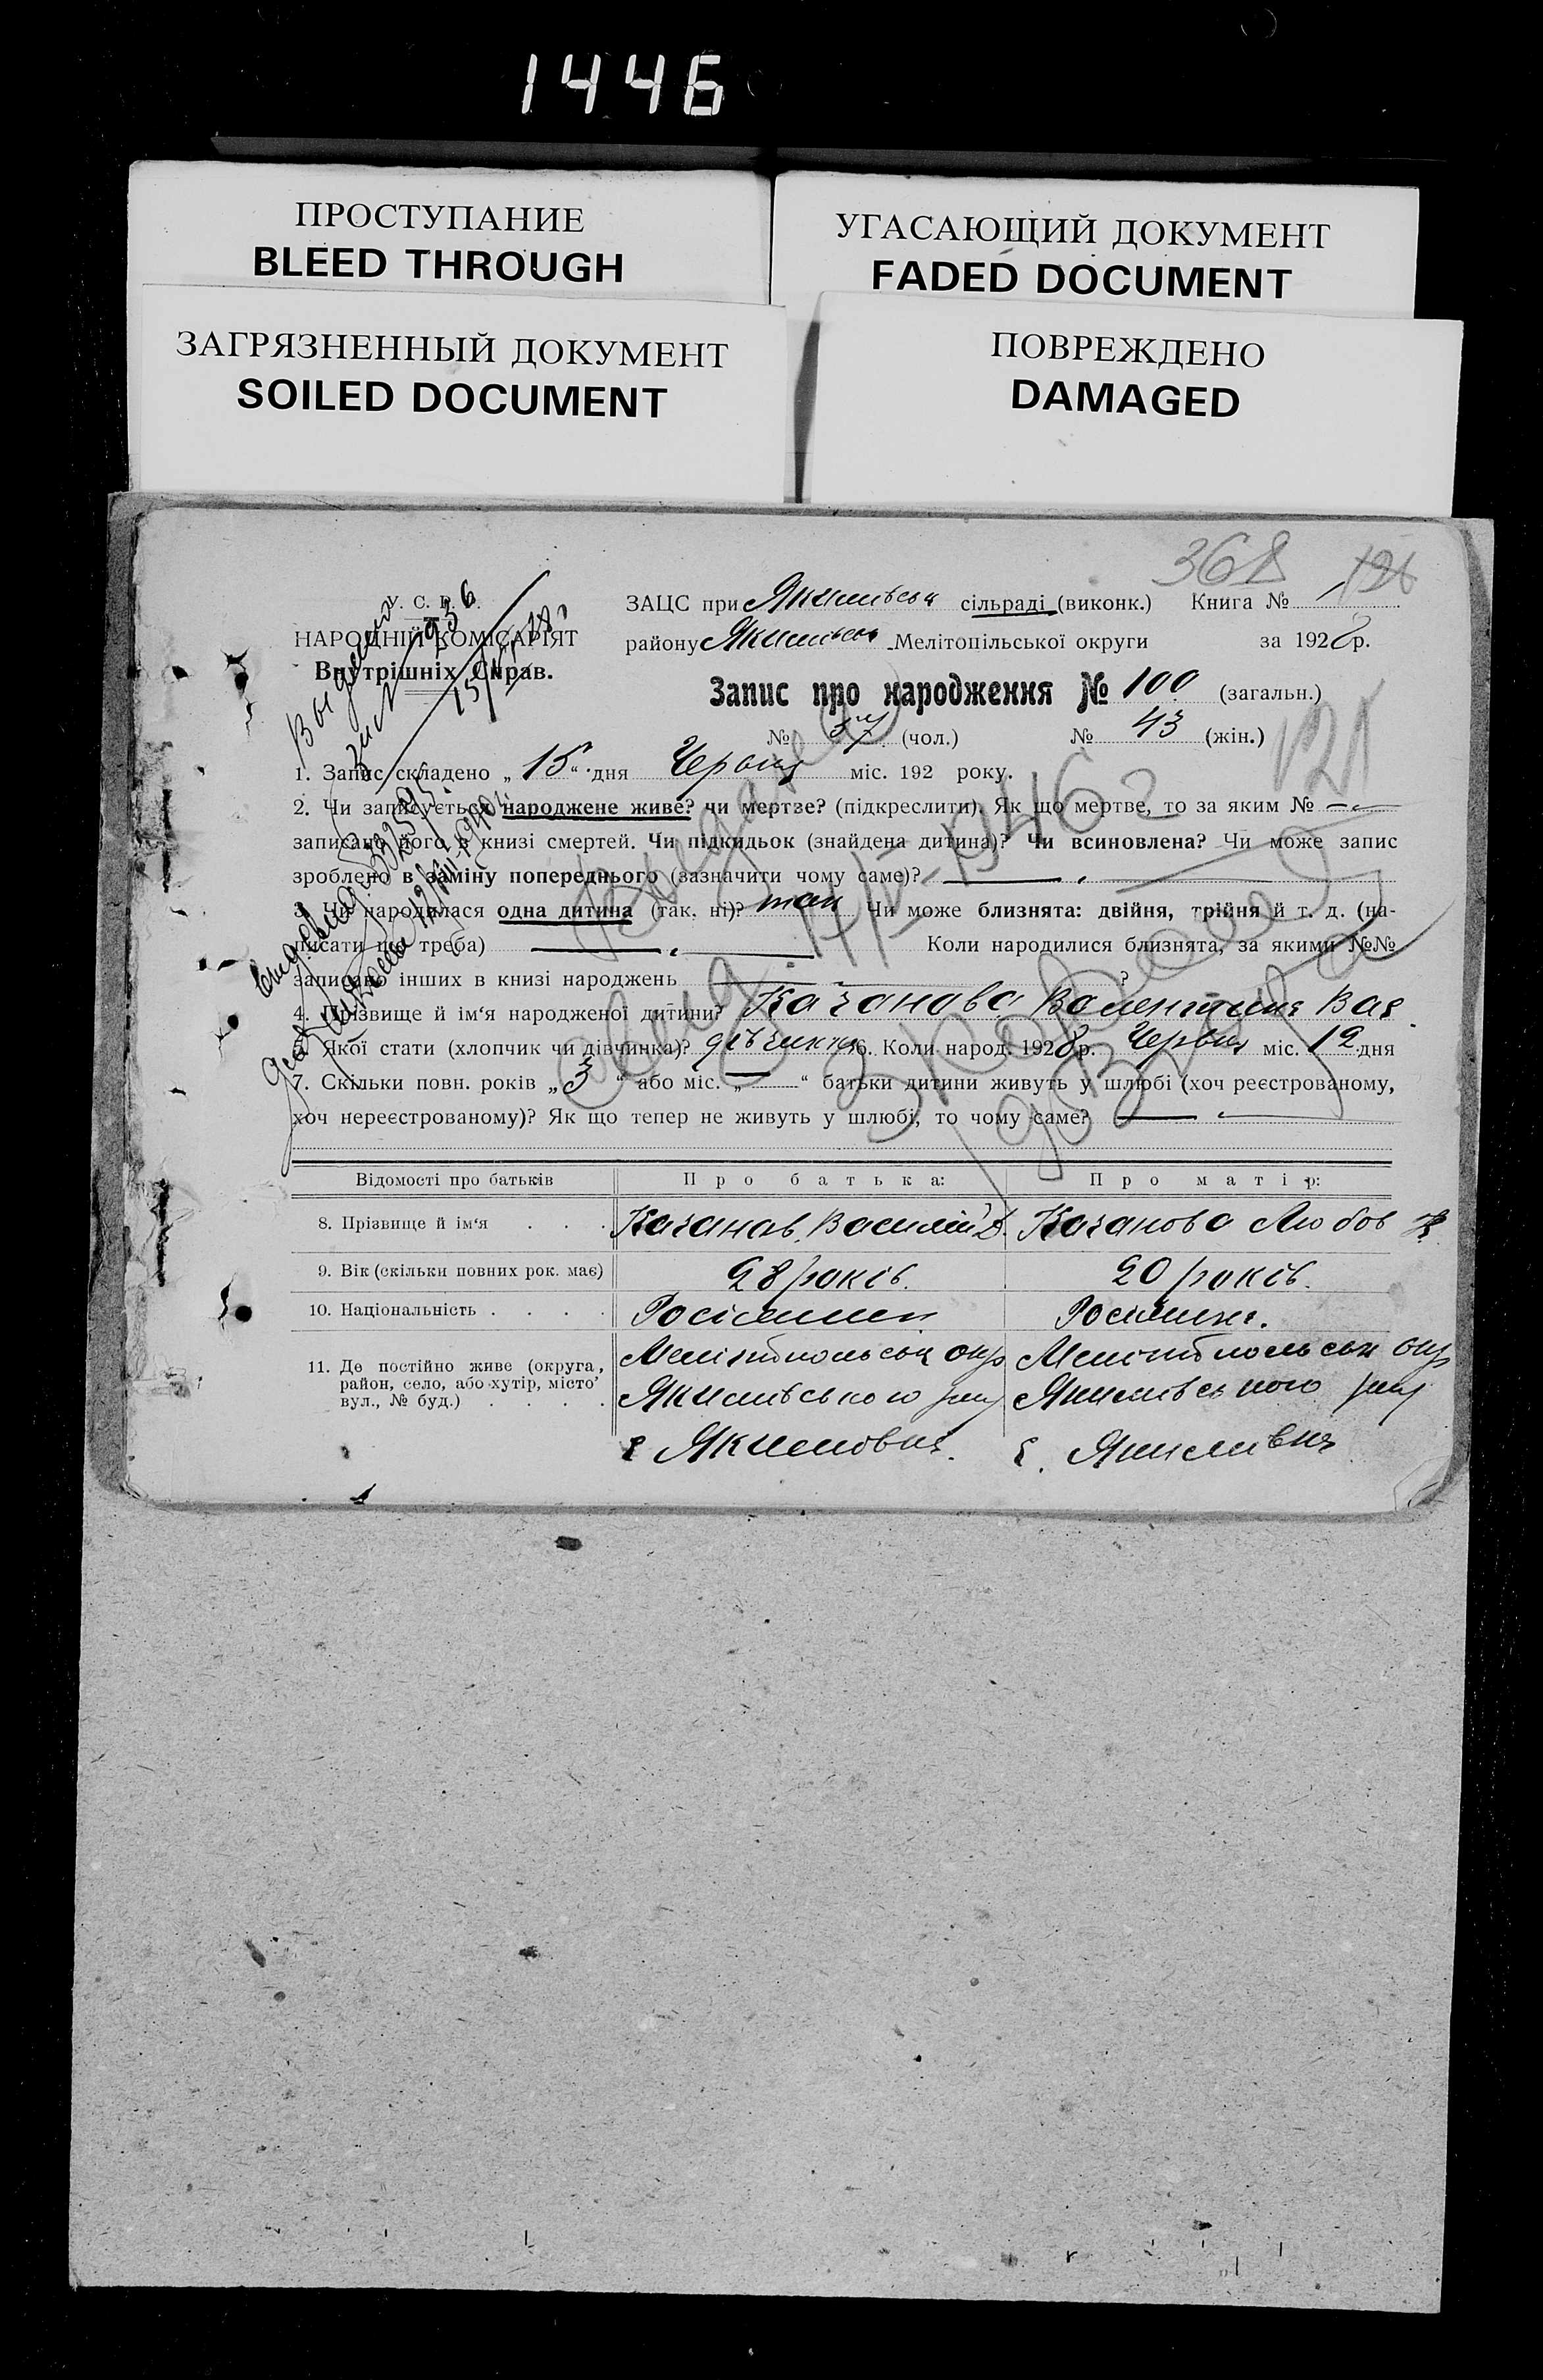 1446
ПРОСТУПАНИЕ
BLEED THROUGH
УГАСАЮЩИЙ ДОКУМЕНТ
FADED DOCUMENT
ЗАГРЯЗНЕННЫЙ ДОКУМЕНТ
SOILED DOCUMENT
ПОВРЕЖДЕНО
DAMAGED
368 126
У. С. Р. Р.
НАРОДНІЙ КОМІСАРІЯТ
Внутрішніх Справ.
ЗАЦС при Якимівськ сільраді (виконк.) Книга №
району Якимівськ Мелітопільської округи за 1928 р.
Запис про народження № 100 (загальн.)
№ 57 (чол.) № 43 (жін.)
121
1. Запис складено „15“ дня Червня міс. 192 року.
2. Чи записується народжене живе? чи мертве? (підкреслити). Як що мертве, то за яким №
записано його в книзі смертей. Чи підкидьок (знайдена дитина)? Чи всиновлена? Чи може запис
зроблено в заміну попереднього (зазначити чому саме)?
3. Чи народилася одна дитина (так, ні)? так Чи може близнята: двійня, трійня й т. д. (на-
писати що треба) Коли народилися близнята, за якими №№
записано інших в книзі народжень ?
4. Прізвище й ім‘я народженої дитини? Качанова Валентина Вас
5. Якої статі (хлопчик чи дівчинка)? дівчинка 6. Коли народ. 1928 р. Червня міс. 12 дня
7. Скільки повн. років „3“ або міс. „—“ батьки дитини живуть у шлюбі (хоч реєстрованому,
хоч нереєстрованому)? Як що тепер не живуть у шлюбі, то чому саме?
Відомості про батьків Про батька: Про матір:
8. Прізвище й ім‘я Качанов Василій Д. Качанова Любов
9. Вік (скільки повних рок. має) 28 років. 20 років.
10. Національність Росіянин Росіянка.
11. Де постійно живе (округа, район, село, або хутір, місто, вул., № буд.)
Мелітопольськ окр Мелітопольськ окр
Якимівського рай Якимівського рай
с Якимовка. с. Якимівка